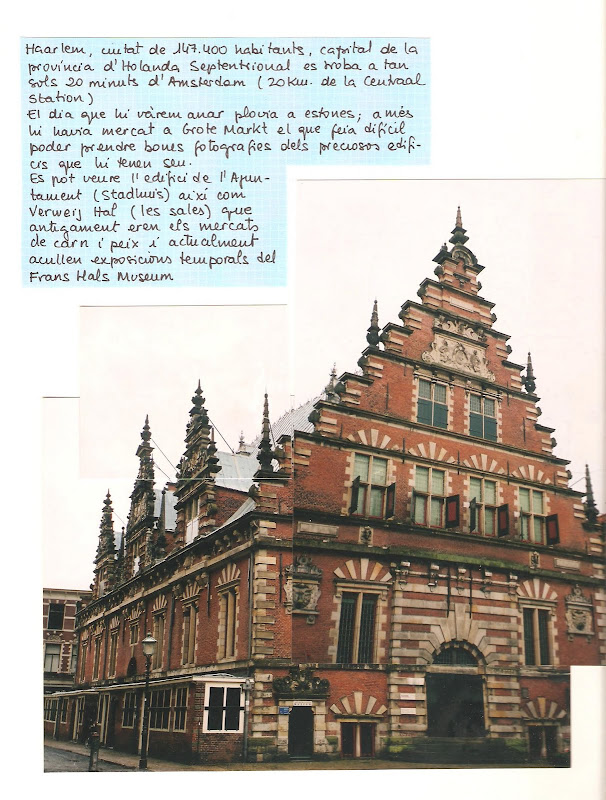 Haarlem, ciutat de 147.400 habitants, capital de la
província d'Holanda Septentrional es troba a tan
sols 20 minuts d'Amsterdam (20 km. de la Centraal
Station)
El dia que hi vàrem anar plovia a estones; a més
hi havia mercat a Grote Markt el que feia difícil
poder prendre bones fotografies dels preciosos edifi-
cis que hi tenen seu.
Es pot veure l'edifici de l'Ajun-
tament (Stadhuis) així com
Verweij Hal (les sales) que
antigament eren els mercats
de carn i peix i actualment
acullen exposicions temporals del
Frans Hals Museum